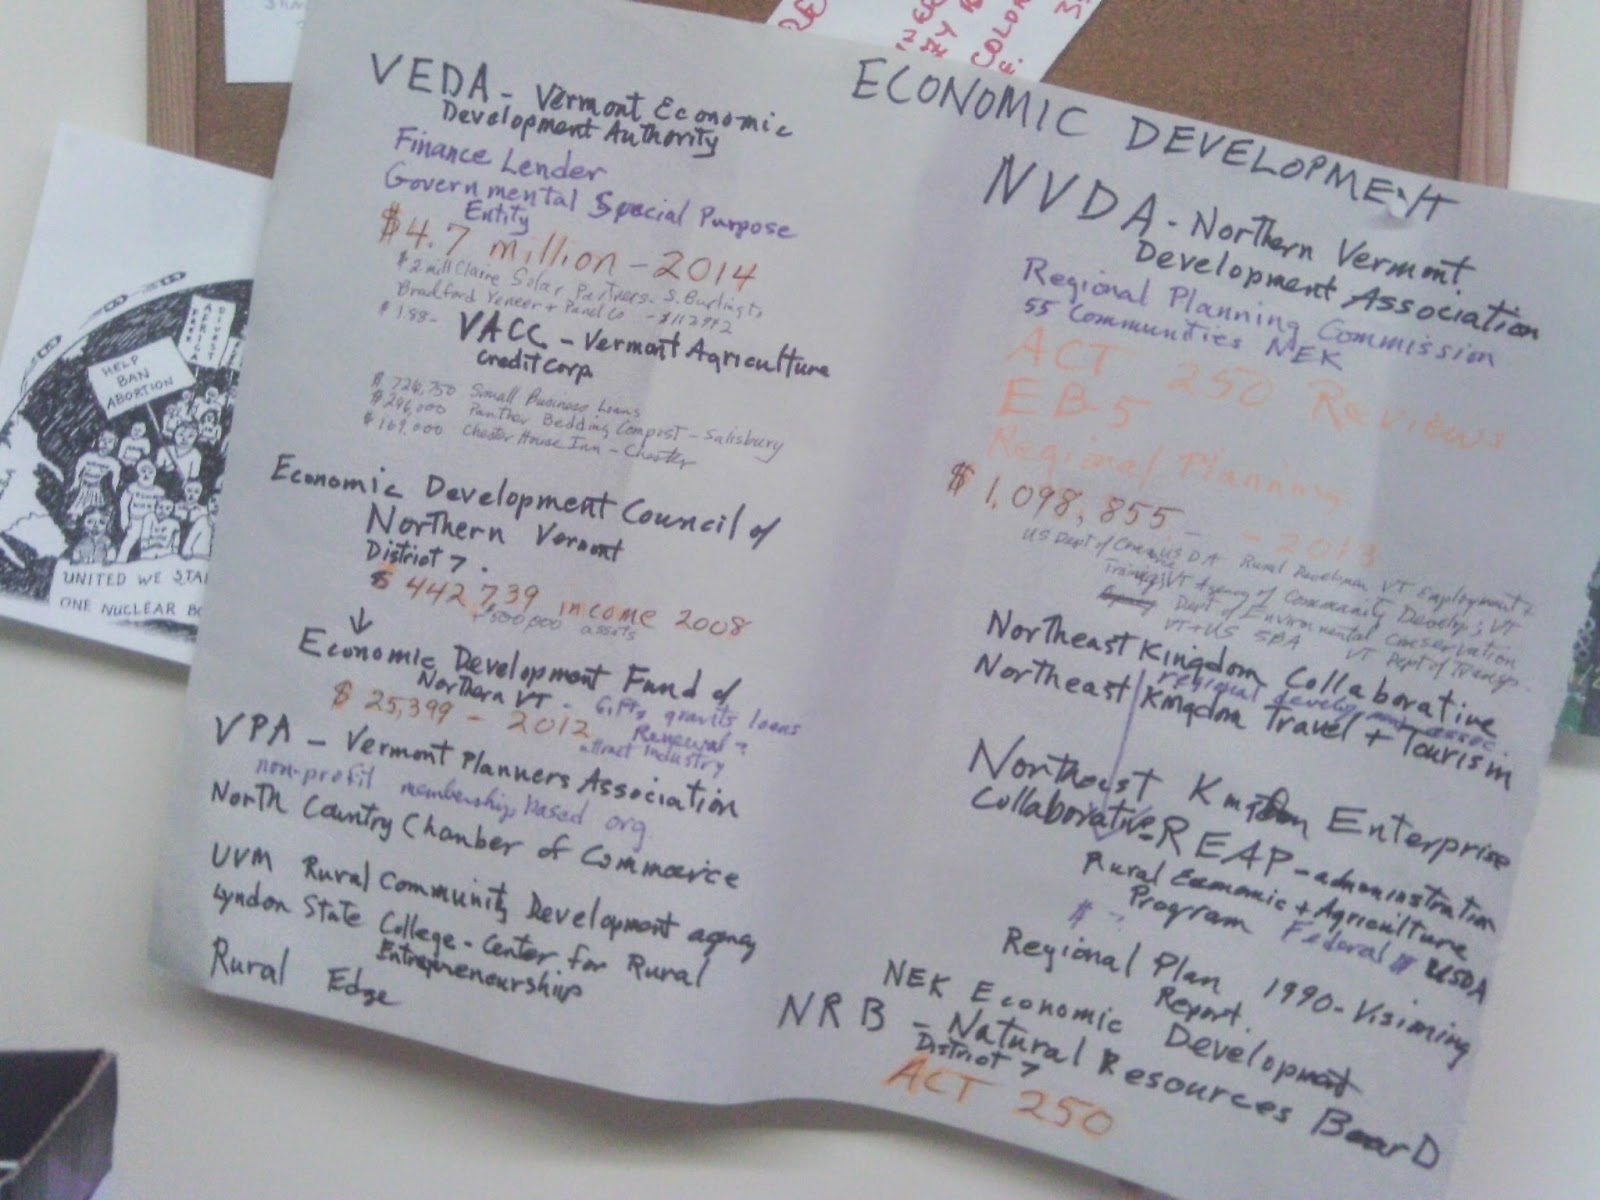 ECONOMIC DEVELOPMENT
VEDA - Vermont Economic
Development Authority
Finance Lender
Governmental Special Purpose
Entity
$4.7 million - 2014
$2 mill Claire Solar Partners - S. Burlington
Bradford Veneer + Panel Co - $112992
$ 1.88 -
VACC - Vermont Agriculture
Credit Corp
$ 726,750 Small Business Loans
$296,000 Panther Bedding Compost - Salisbury
$169,000 Chester House Inn - Chester
Economic Development Council of
Northern Vermont
District 7.
$ 442,739 income 2008
$500,000 assets
↓
Economic Development Fund of
Northern VT - Gifts, grants loans
$ 25,399 - 2012 Renewal
attract industry
VPA - Vermont Planners Association
non-profit membership based org
North Country Chamber of Commerce
UVM Rural Community Development agency
Lyndon State College - Center for Rural
Entrepreneurship
Rural Edge
NVDA - Northern Vermont
Development Association
Regional Planning Commission
55 Communities NEK
ACT 250 Reviews
EB-5
Regional Planning
$ 1,098,855 - - 2013
US Dept of USDA Rural VT Employment
Training; VT Agency of Community Develop; VT
Dept of Environmental Conservation
VT + US SBA VT Dept of Transp.
Northeast Kingdom Collaborative
regional assoc.
Northeast Kingdom Travel + Tourism
Northeast Kingdom Enterprise
Collaborative - REAP - administration
Rural Economic + Agriculture
Program
$ ? Federal USDA
Regional Plan 1990 - Visioning
Report.
NEK Economic Development
NRB - Natural Resources BoarD
District 7
ACT 250
HELP
BAN
ABORTION
DIVEST
AFRICA
UNITED WE STA
ONE NUCLEAR BO